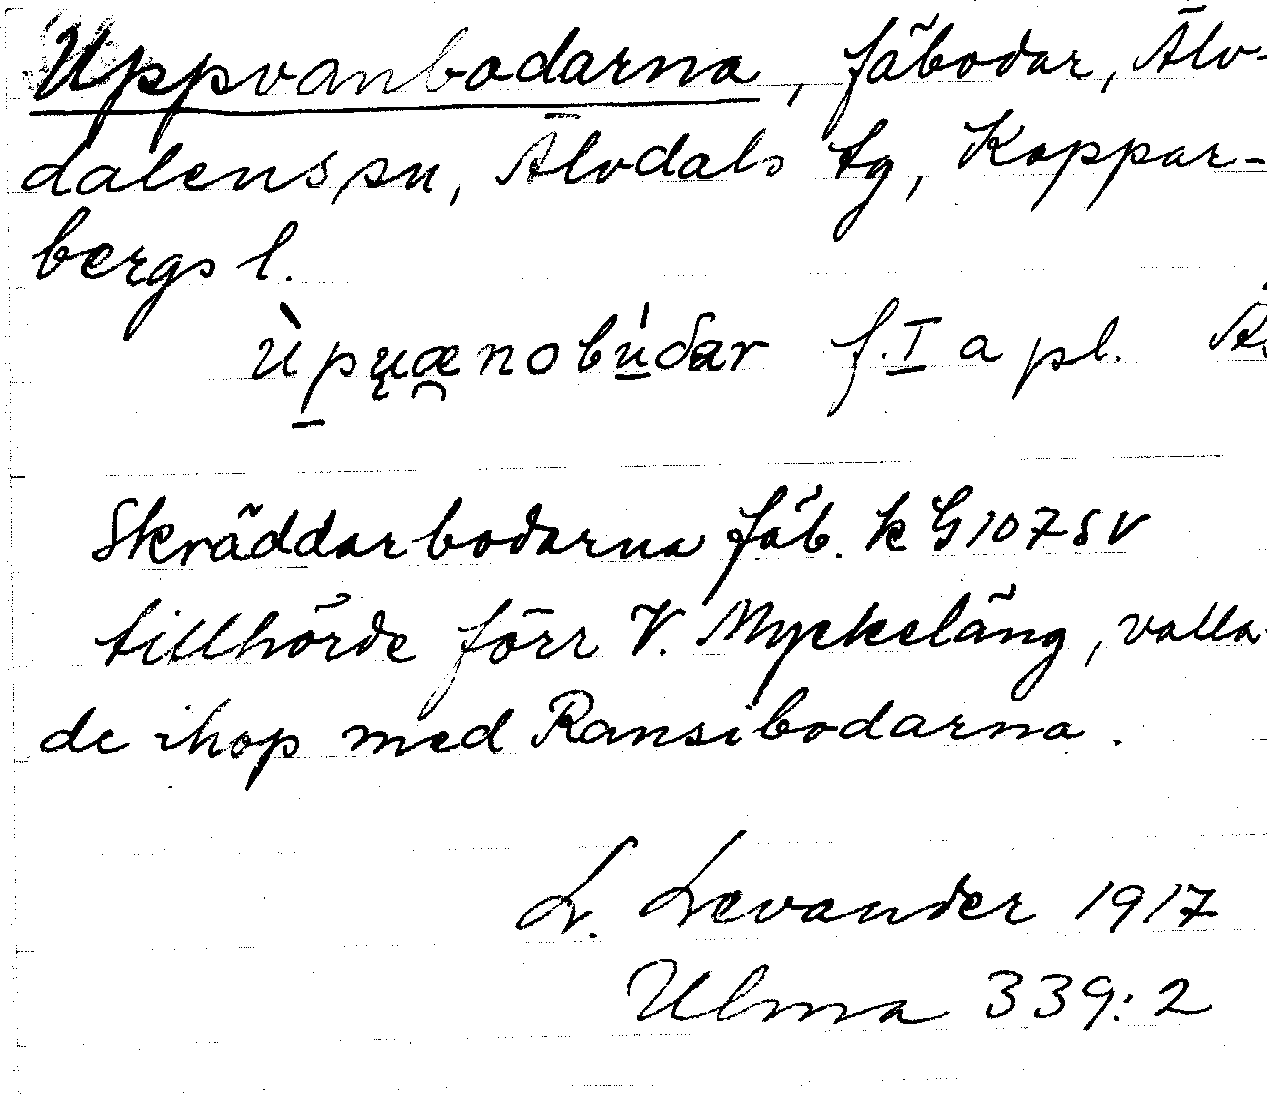 Uppvanbodarna, fäbodar, Älv-
dalens sn, Älvdals tg, Koppar-
bergs l.
f. I a pl.
Skräddarbodarna fäb. k G 107 SV
tillhörde förr V. Myckeläng, valla-
de ihop med Ransibodarna.
L. Levander 1917
Ulma 339:2